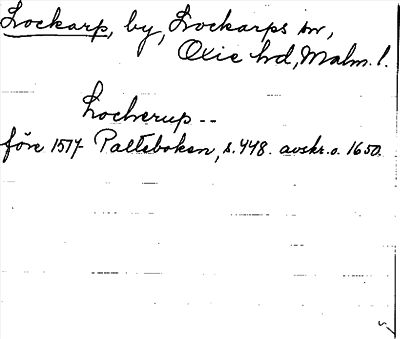 Lockarp, by, Lockarps sn,
Oxie hd, Malm. l.
Locherup --
före 1517 Palteboken, s. 448. avskr. o. 1650.